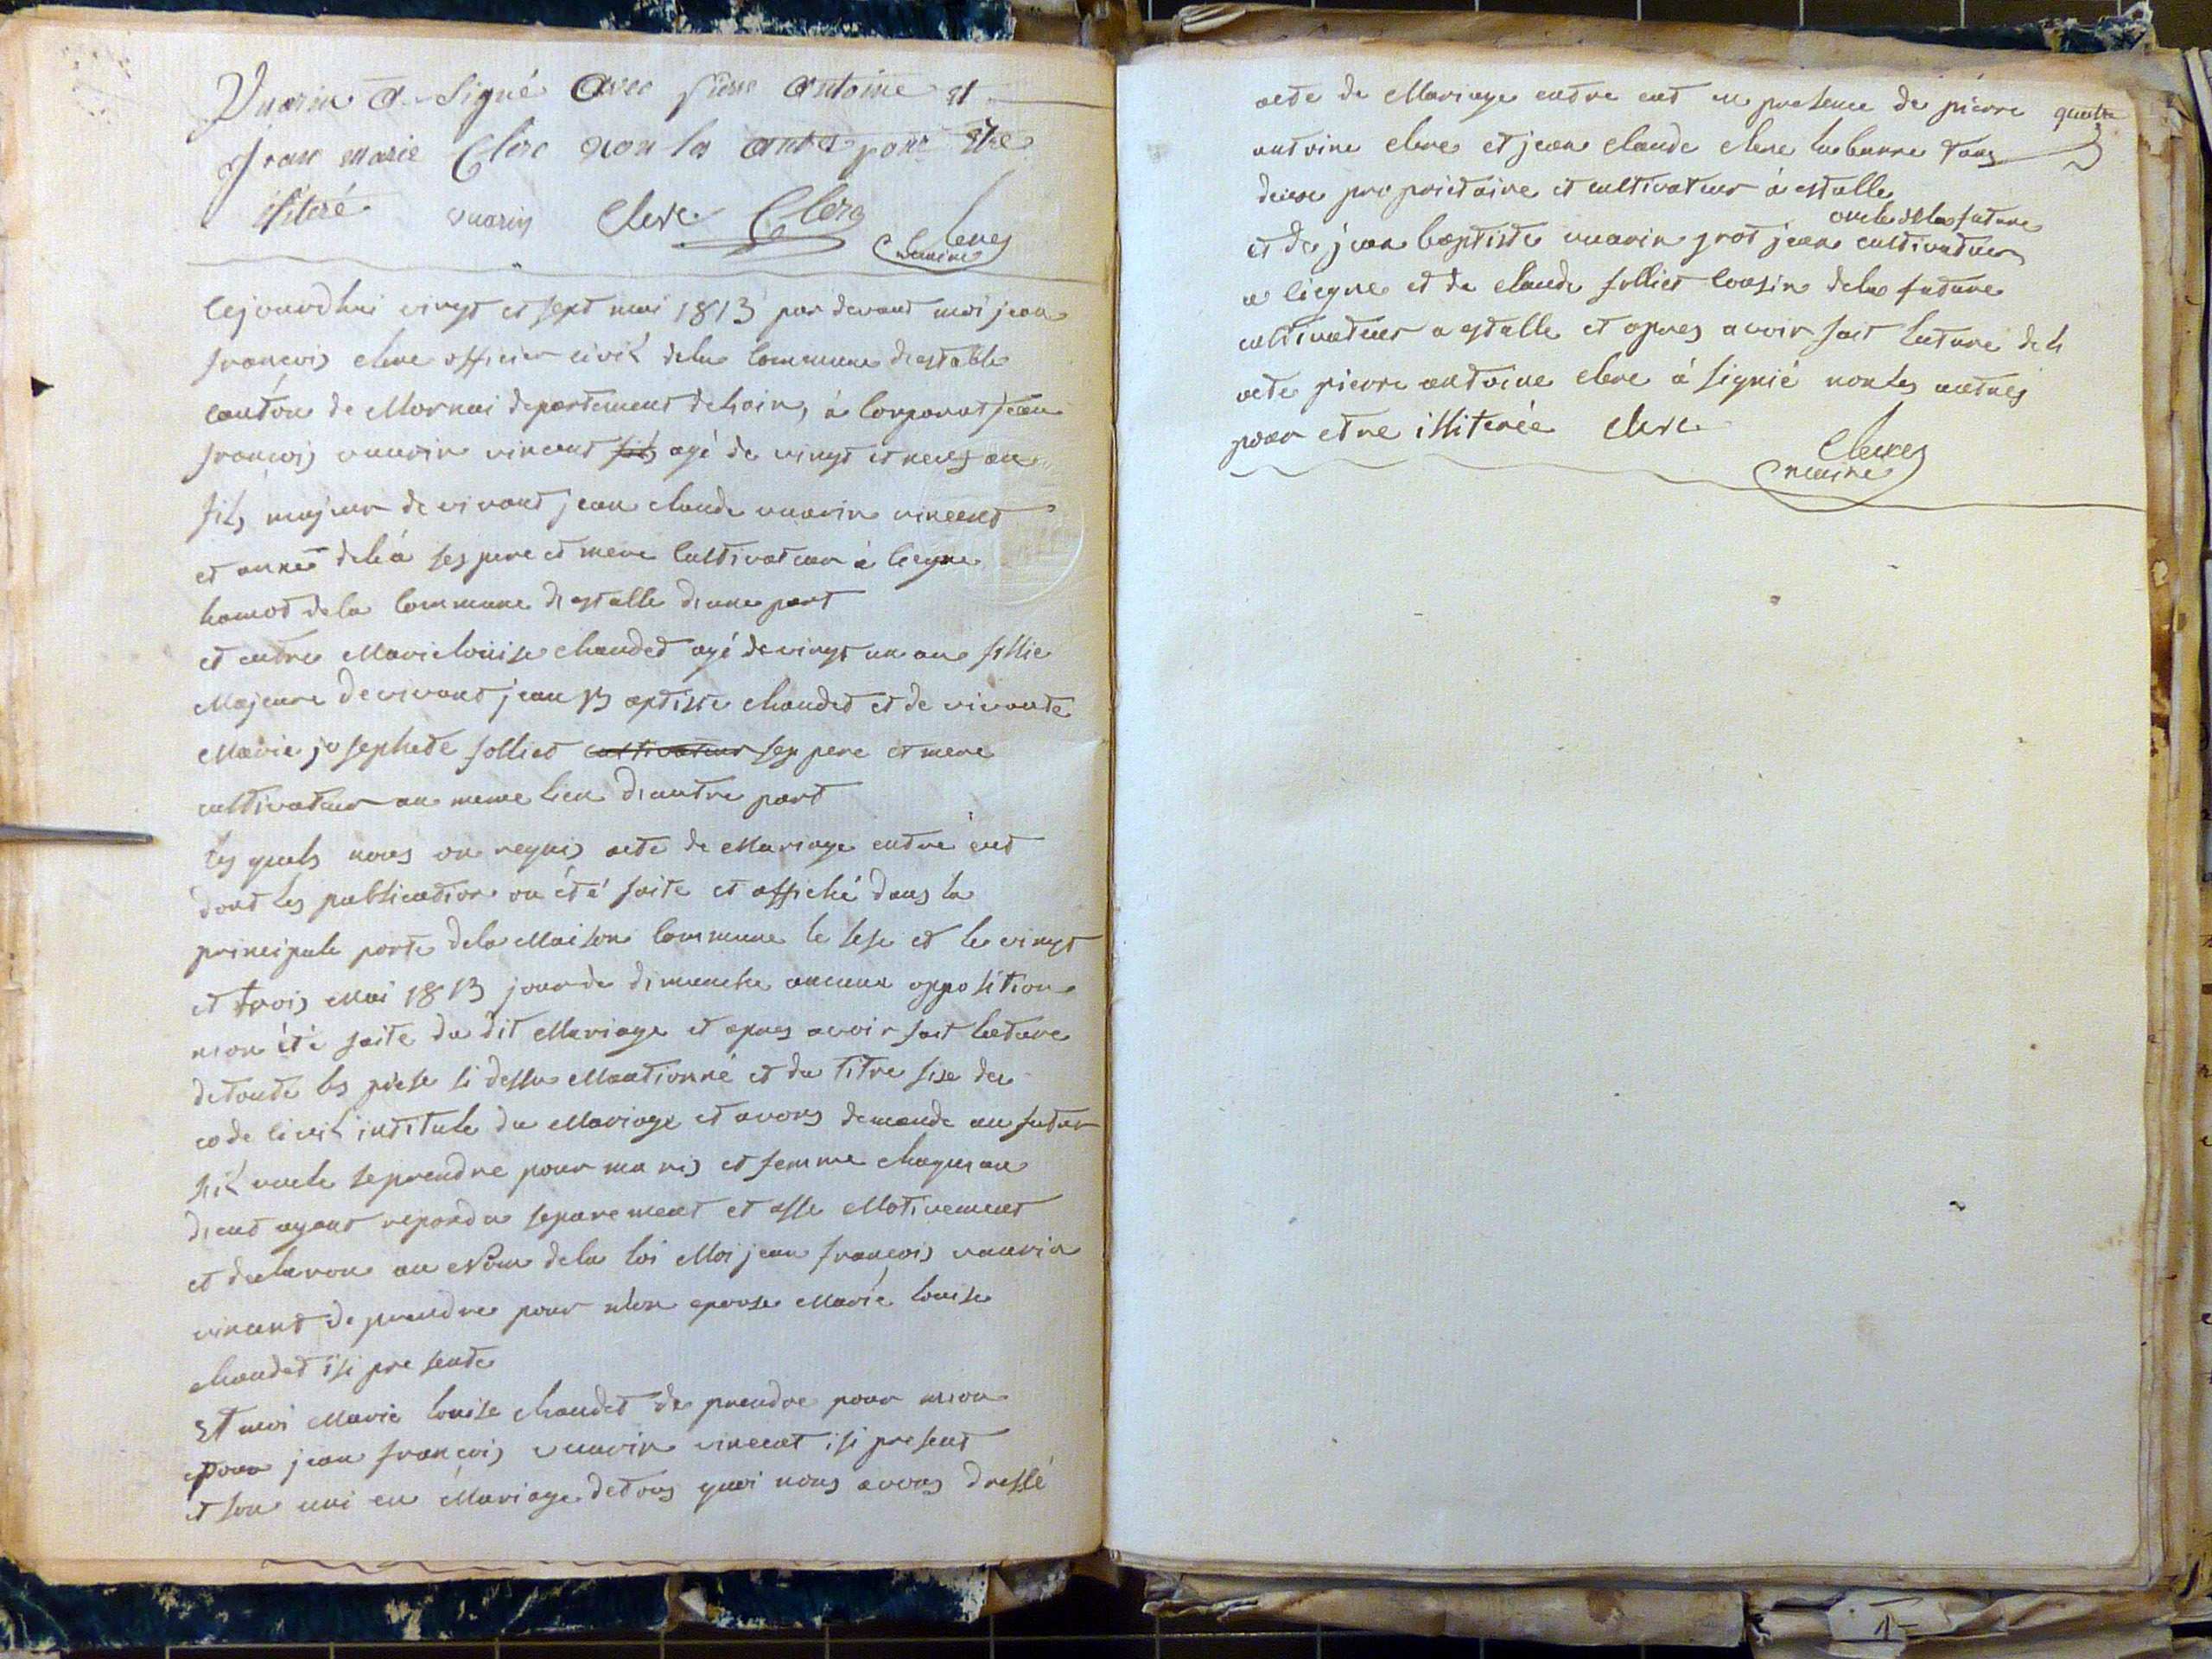 Vuarin a signé avec pierre antoine et
jean marie Clerc non les autres pour être
iliteré vuarin Clerc Clerc Clerc
maire
Cejourdhui vingt et sept mai 1813 par devant moi jean
francois clerc officier civil dela Commune destable
canton de Mornai departement delain, à Comparut jean
francois vuarin vincent fils agé de vingt et neuf an
fils majeur de vivant jean claude vuarin vincent
et ses pere et mere Cultivateur à liegne
hamot dela Commune destalle dune part
et entre Marie louise chaudet agé de vingt un an fillie
Majeure de vivant jean Baptiste chaudet et de vivante
Marie josephete folliet cultivateur ses pere et mere
cultivateur au meme lieu dautre part
lesquels nous on requis acte de Mariage entre eut
dont les publication on été faite et affiché dans la
principale porte dela Maison Commune le sese et le vingt
et trois Mai 1813 jour de dimanche aucune opposition
non été faite du dit Mariage et apres avoir fait lecture
de toute les piese si dessu Mantionné et du titre sise du
code civil intitule du Mariage et avons demande au futur
sil veule se prendre pour maris et femme chaqunan
dieut ayant repondu separement et affe Motivement
et declaron au Nom dela loi Moi jean francois vuarin
vincent de prendre pour mon epouse Marie louise
chaudet isi presente
Et moi Marie louise chaudet de prendre pour mon
epoux jean francois vuarin vincent isi present
et son uni en Mariage de tous quoi nous avons dressé
acte de Mariage entre eut en presence de pierre
antoine clerc et jean claude clerc tous
deux proprietaire et cultivateur à estalle
oncle dela future
et de jean baptiste vuarin grot jean cultivateur
a liegne et de claude folliet Cousin dela future
cultivateur a estalle et apres avoir fait lecture del
acte pierre antoine clerc à signié non les autres
pour etre illiterée Clerc
Clerc
maire